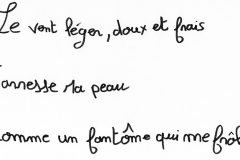 Le vent léger, doux et frais
aresse ta peau
omme un fantôme qui me frôl